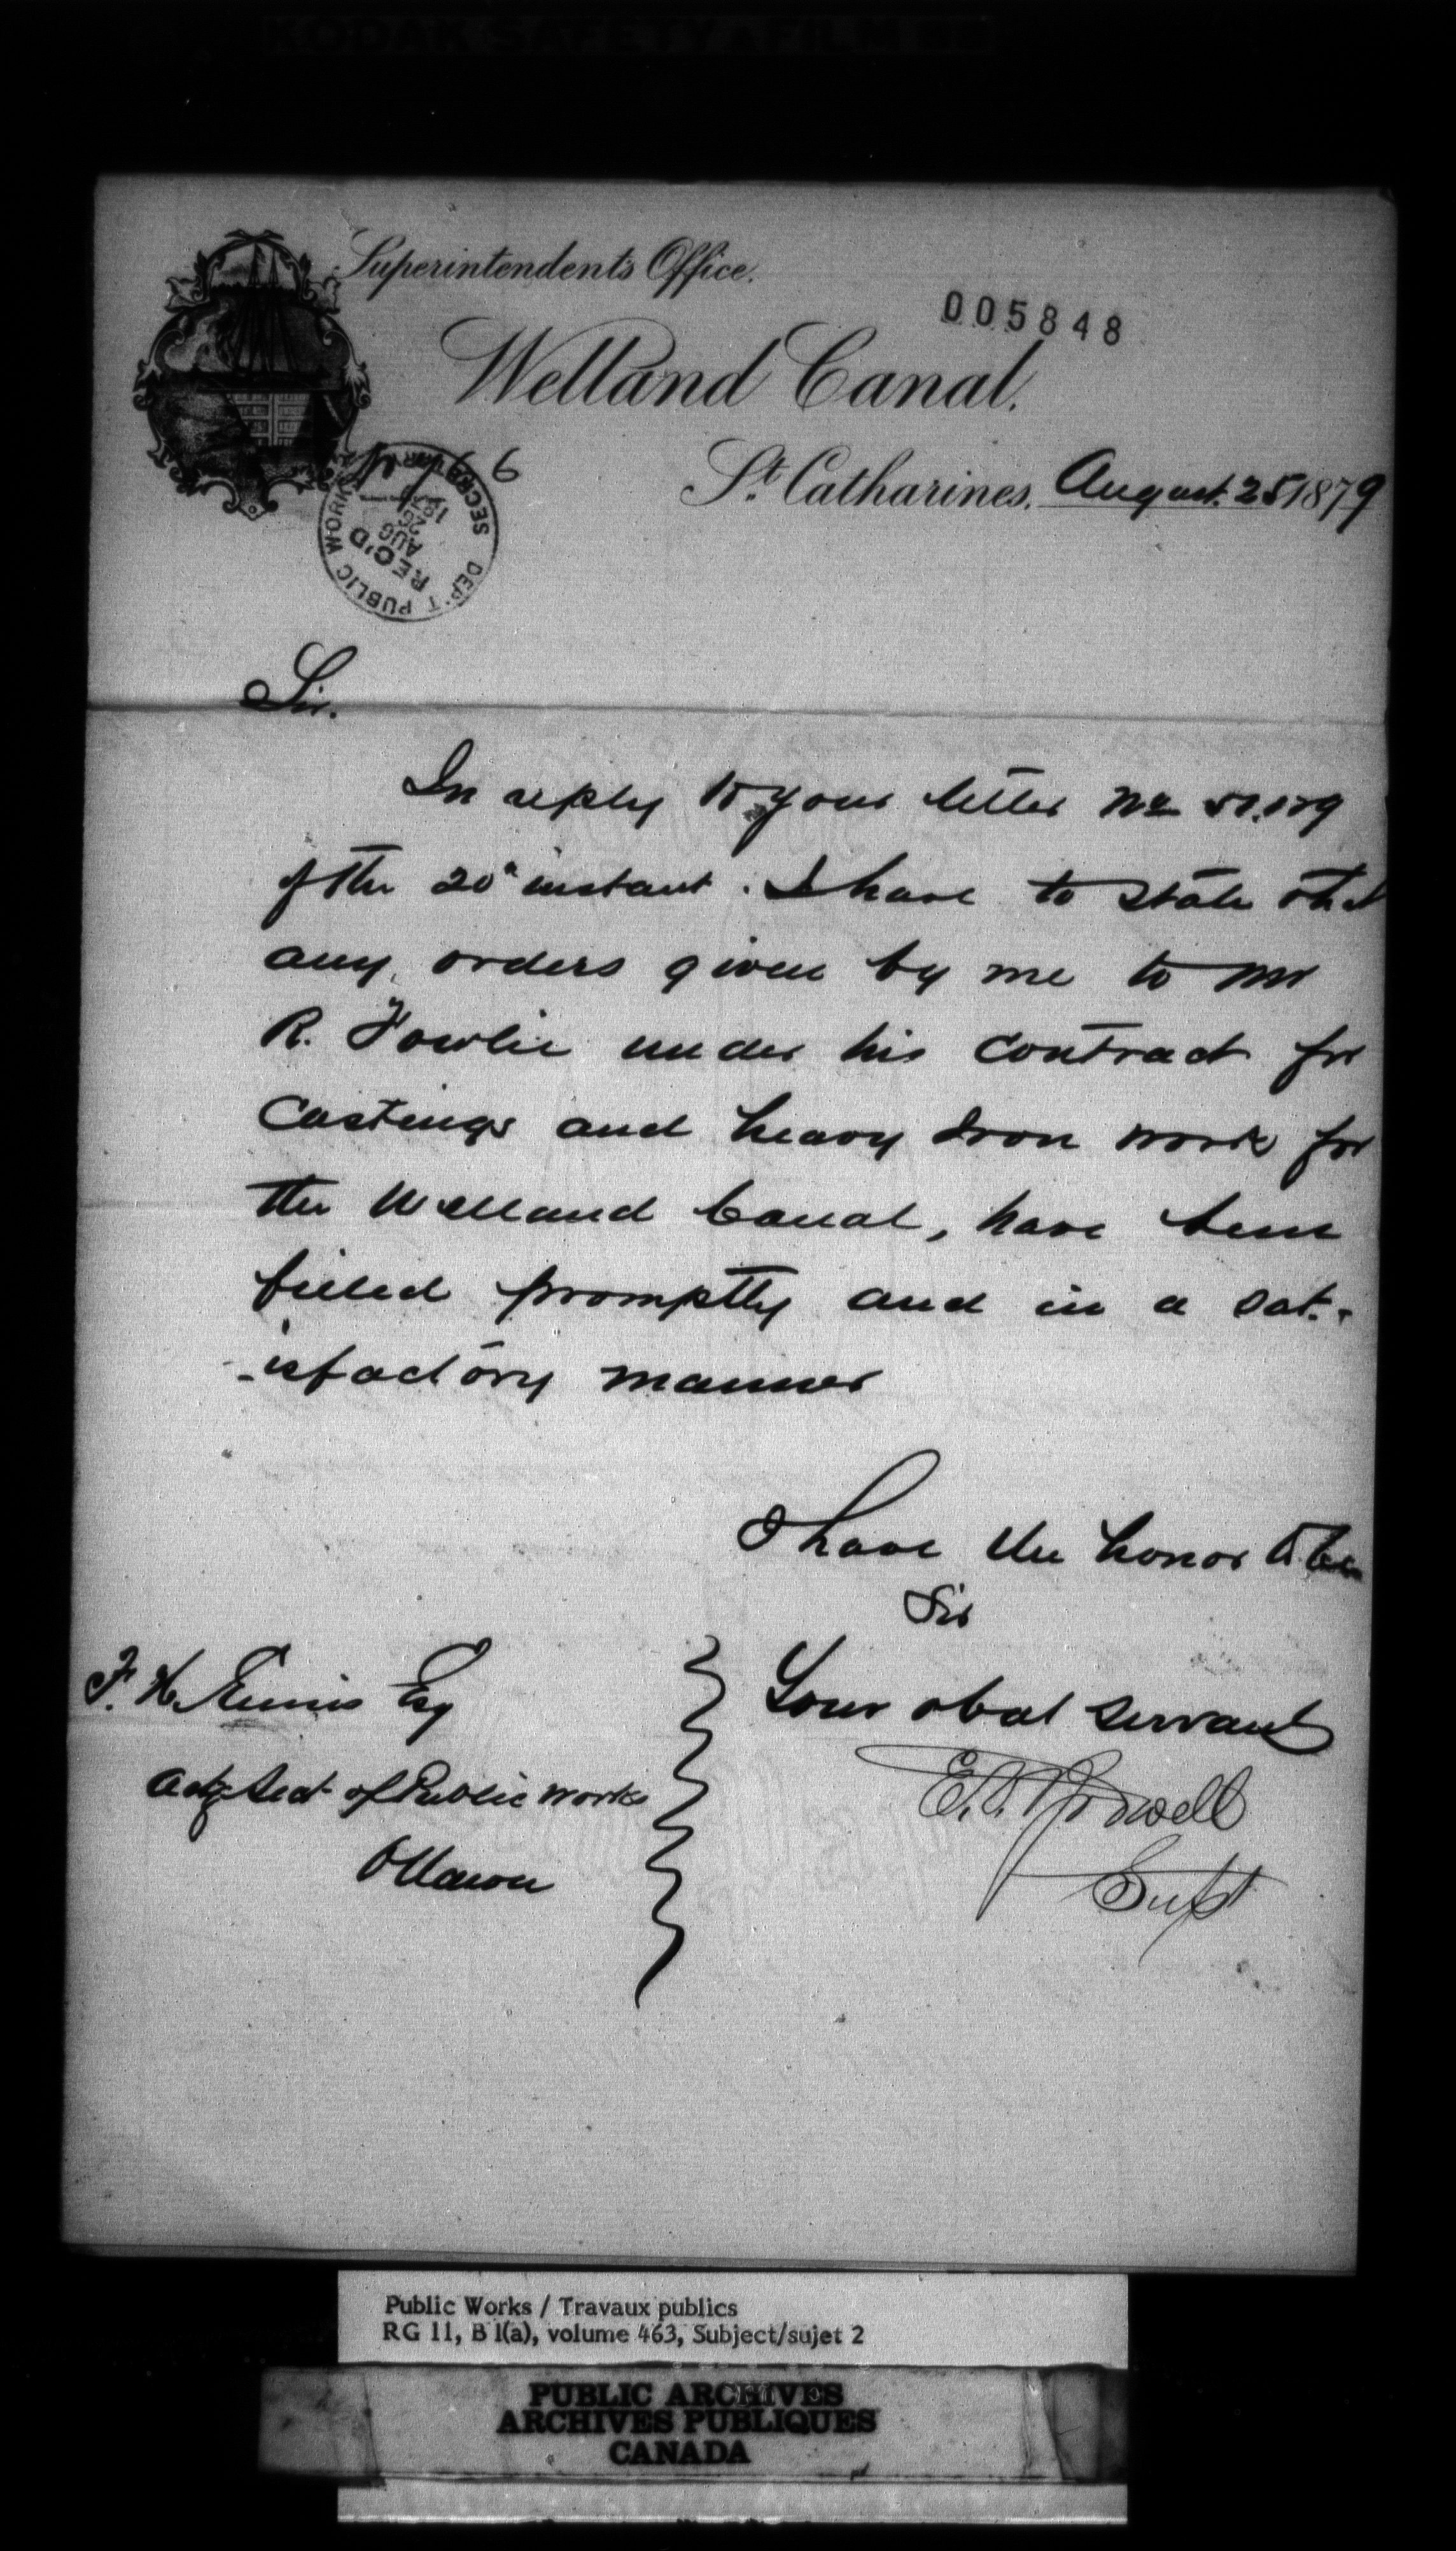 Superintendent's Office.
005848
Welland Canal.
St. Catharines, August 25 1879
6
DEP'T PUBLIC WORKS SECRETARY
REC'D
AUG
26
187
Sir.
In reply to your letter No
of the 20th instant. I have to state that
any orders given by me to Mr
R. Fowlie under his contract for
Castings and heavy Iron work for
the Welland Canal, have been
filled promptly and in a sat-
-isfactory manner
I have the honor to be
Sir
Your obdt Servant
E. V. Bodwell
Supt
F. H. Ennis Esq
Actg Sect of Public Works
Ottawa
Public Works / Travaux publics
RG 11, B 1(a), volume 463, Subject/sujet 2
PUBLIC ARCHIVES
ARCHIVES PUBLIQUES
CANADA